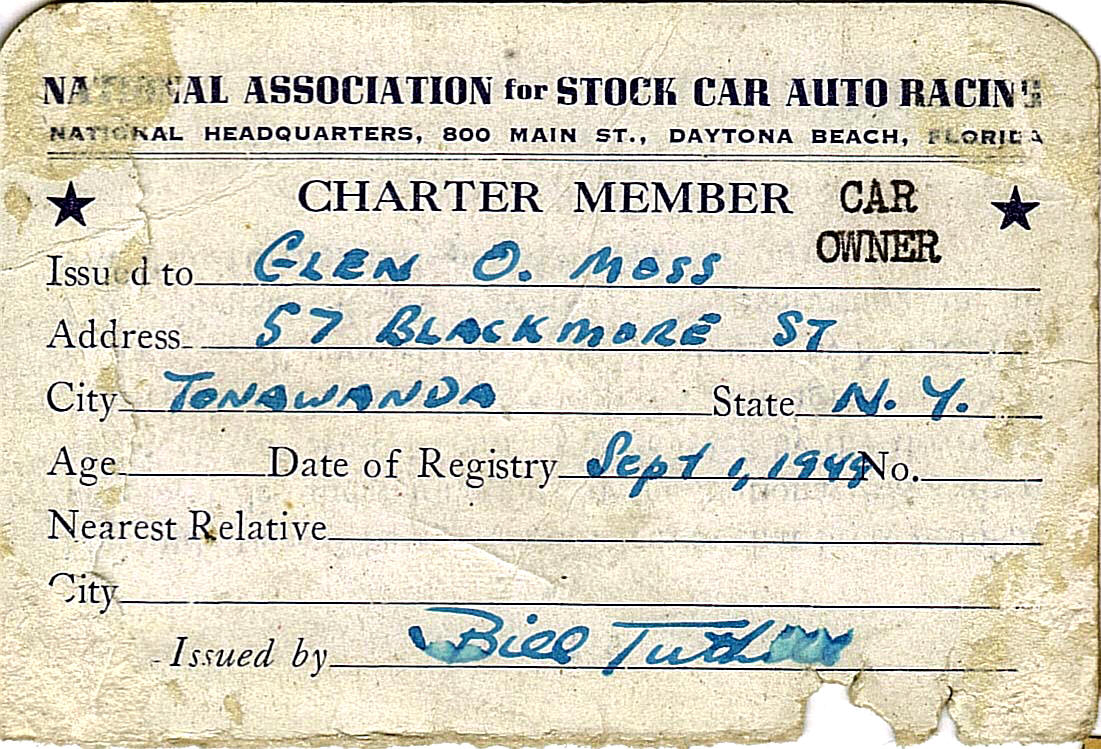 NATIONAL ASSOCIATION for STOCK CAR AUTO RACING
NATIONAL HEADQUARTERS, 800 MAIN ST., DAYTONA BEACH, FLORIDA
CHARTER MEMBER CAR OWNER
Issued to GLEN O. MOSS
Address 57 BLACKMORE ST
City TONAWANDA State N. Y.
Age Date of Registry Sept 1, 1949 No.
Nearest Relative
City
Issued by Bill Tuthill